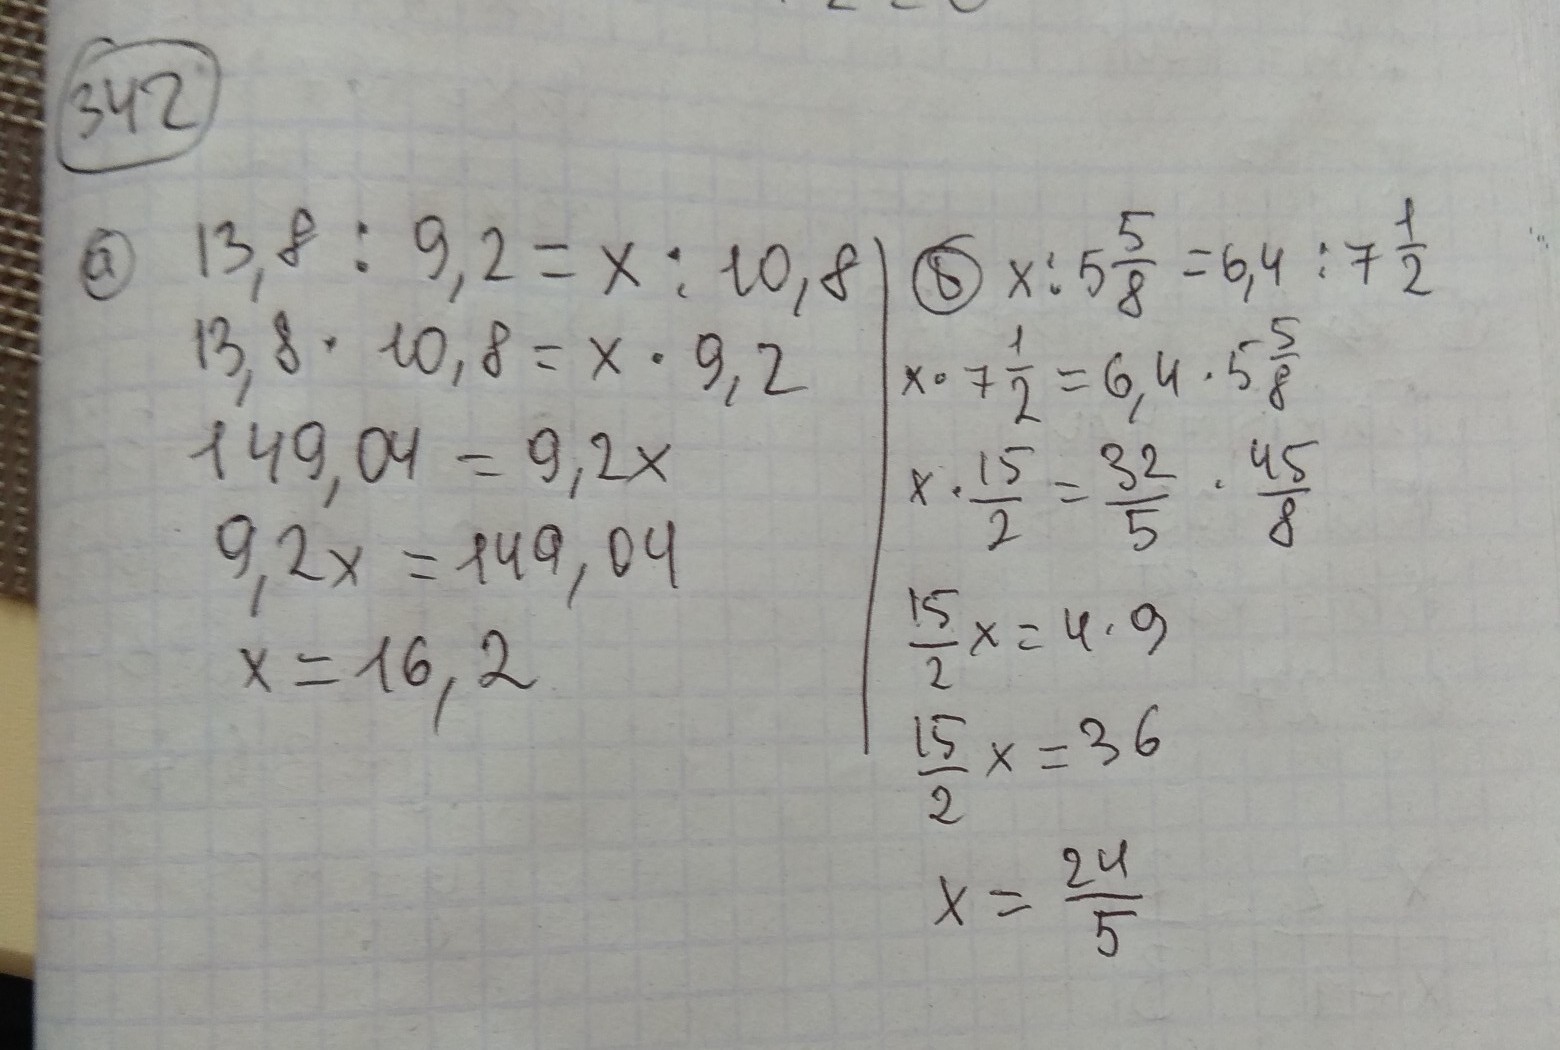 342
а) 13,8 : 9,2 = x : 10,8
13,8 · 10,8 = x · 9,2
149,04 = 9,2x
9,2x = 149,04
x = 16,2
б) x : 5 5/8 = 6,4 : 7 1/2
x · 7 1/2 = 6,4 · 5 5/8
x · 15/2 = 32/5 · 45/8
15/2 x = 4 · 9
15/2 x = 36
x = 24/5